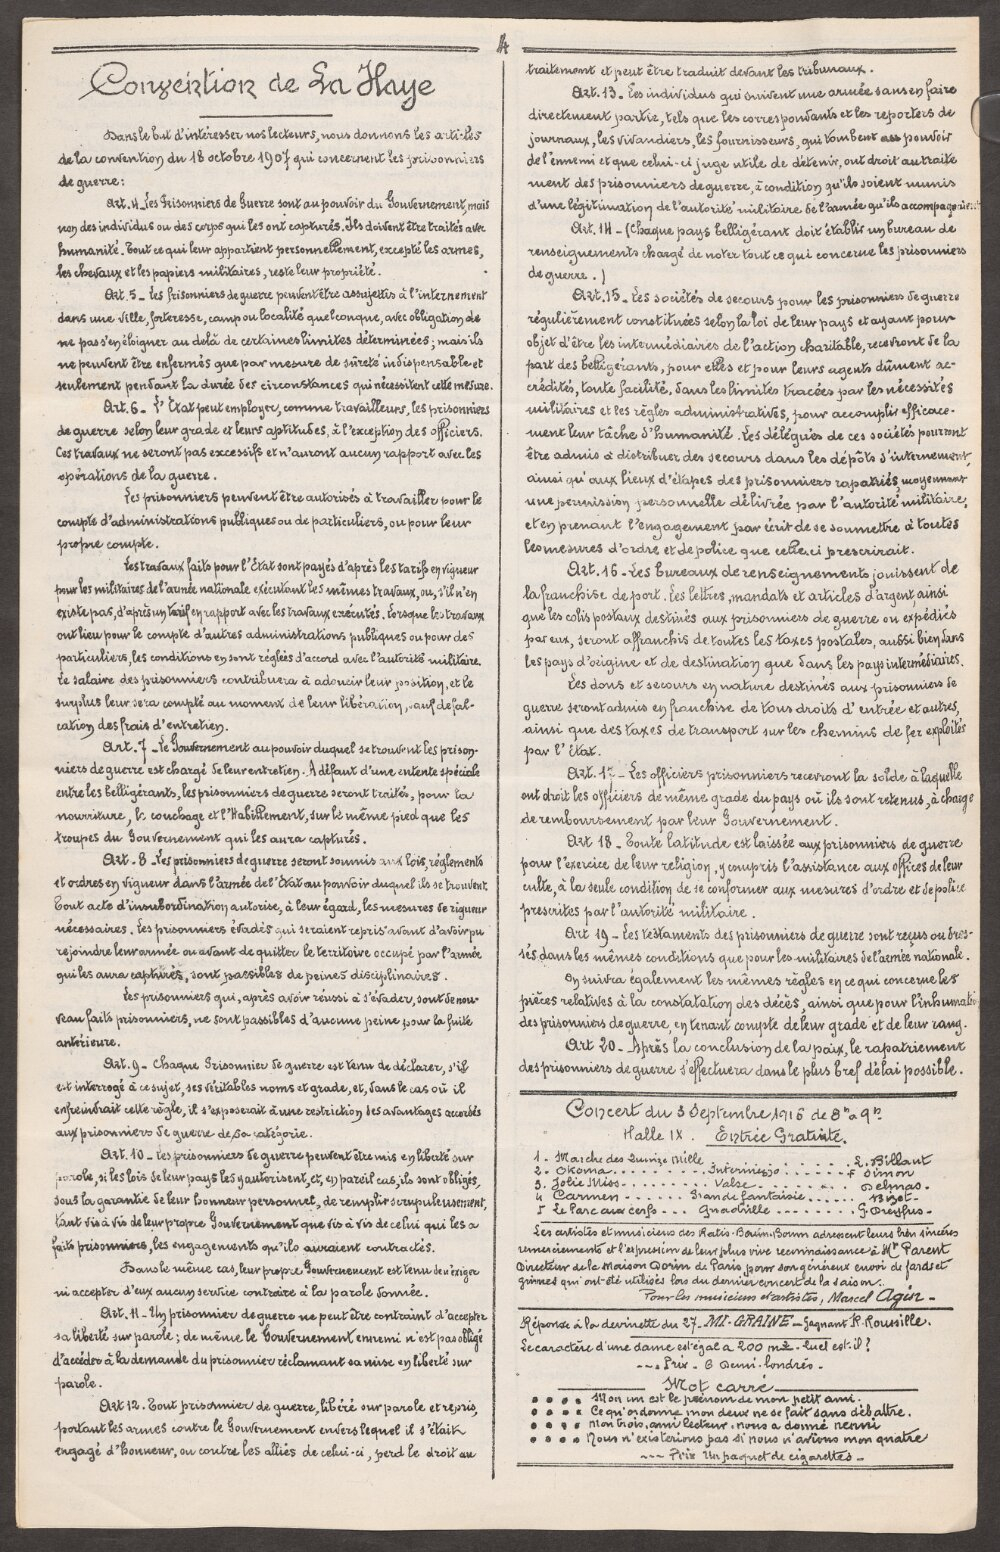 4
Convention de La Haye
Dans le but d'intéresser nos lecteurs, nous donnons les articles
de la convention du 18 octobre 1907 qui concernent les prisonniers
de guerre:
Art. 4 - Les Prisonniers de Guerre sont au pouvoir du Gouvernement, mais
non des individus ou des corps qui les ont capturés. Ils doivent être traités avec
humanité. Tout ce qui leur appartient personnellement, excepté les armes,
les chevaux et les papiers militaires, reste leur propriété.
Art. 5 - Les prisonniers de guerre peuvent être assujettis à l'internement
dans une ville, forteresse, camp ou localité quelconque, avec obligation de
ne pas s'en éloigner au delà de certaines limites déterminées; mais ils
ne peuvent être enfermés que par mesure de sûreté indispensable et
seulement pendant la durée des circonstances qui nécessitent cette mesure.
Art. 6 - L'État peut employer, comme travailleurs, les prisonniers
de guerre selon leur grade et leurs aptitudes, à l'exception des officiers.
Ces travaux ne seront pas excessifs et n'auront aucun rapport avec les
opérations de la guerre.
Les prisonniers peuvent être autorisés à travailler pour le
compte d'administrations publiques ou de particuliers, ou pour leur
propre compte.
Les travaux faits pour l'État sont payés d'après les tarifs en vigueur
pour les militaires de l'armée nationale exécutant les mêmes travaux, ou, s'il n'en
existe pas, d'après un tarif en rapport avec les travaux exécutés. Lorsque les travaux
ont lieu pour le compte d'autres administrations publiques ou pour des
particuliers, les conditions en sont réglées d'accord avec l'autorité militaire.
Le salaire des prisonniers contribuera à adoucir leur position, et le
surplus leur sera compté au moment de leur libération, sauf défal-
cation des frais d'entretien.
Art. 7 - Le Gouvernement au pouvoir duquel se trouvent les prison-
niers de guerre est chargé de leur entretien. A défaut d'une entente spéciale
entre les belligérants, les prisonniers de guerre seront traités, pour la
nourriture, le couchage et l'Habillement, sur le même pied que les
troupes du Gouvernement qui les aura capturés.
Art. 8 - Les prisonniers de guerre seront soumis aux lois, réglements
et ordres en vigueur dans l'armée de l'État au pouvoir duquel ils se trouvent.
Tout acte d'insubordination autorise, à leur égard, les mesures de rigueur
nécessaires. Les prisonniers évadés qui seraient repris avant d'avoir pu
rejoindre leur armée ou avant de quitter le territoire occupé par l'armée
qui les aura capturés, sont passibles de peines disciplinaires.
Les prisonniers qui, après avoir réussi à s'évader, sont de nou-
veau faits prisonniers, ne sont passibles d'aucune peine pour la fuite
antérieure.
Art. 9 - Chaque Prisonnier de guerre est tenu de déclarer, s'il
est interrogé à ce sujet, ses véritables noms et grade, et, dans le cas où il
enfreindrait cette règle, il s'exposerait à une restriction des avantages accordés
aux prisonniers de guerre de sa catégorie.
Art. 10 - Les prisonniers de guerre peuvent être mis en liberté sur
parole, si les lois de leur pays les y autorisent, et, en pareil cas, ils sont obligés,
sous la garantie de leur honneur personnel, de remplir scrupuleusement,
tant vis à vis de leur propre Gouvernement que vis à vis de celui qui les a
faits prisonniers, les engagements qu'ils auraient contractés.
Dans le même cas, leur propre Gouvernement est tenu de n'exiger
ni accepter d'eux aucun service contraire à la parole donnée.
Art. 11 - Un prisonnier de guerre ne peut être contraint d'accepter
sa liberté sur parole; de même le Gouvernement ennemi n'est pas obligé
d'accéder à la demande du prisonnier réclamant sa mise en liberté sur
parole.
Art 12 - Tout prisonnier de guerre, libéré sur parole et repris,
portant les armes contre le Gouvernement envers lequel il s'était
engagé d'honneur, ou contre les alliés de celui-ci, perd le droit au
traitement et peut être traduit devant les tribunaux.
Art. 13 - Les individus qui suivent une armée sans en faire
directement partie, tels que les correspondants et les reporters de
journaux, les vivandiers, les fournisseurs, qui tombent au pouvoir
de l'ennemi et que celui-ci juge utile de détenir, ont droit au traite
ment des prisonniers de guerre, à condition qu'ils soient munis
d'une légitimation de l'autorité militaire de l'armée qu'ils accompagnaient
Art. 14 - (Chaque pays belligérant doit établir un bureau de
renseignements chargé de noter tout ce qui concerne les prisonniers
de guerre.)
Art. 15 - Les sociétés de secours pour les prisonniers de guerre
régulièrement constituées selon la loi de leur pays et ayant pour
objet d'être les intermédiaires de l'action charitable, recevront de la
part des belligérants, pour elles et pour leurs agents dûment ac-
crédités, toute facilité, dans les limites tracées par les nécessités
militaires et les règles administratives, pour accomplir efficace-
ment leur tâche d'humanité. Les délégués de ces sociétés pourront
être admis à distribuer des secours dans les dépôts d'internement,
ainsi qu'aux lieux d'étapes des prisonniers rapatriés moyennant
une permission personnelle délivrée par l'autorité militaire,
et en prenant l'engagement par écrit de se soumettre à toutes
les mesures d'ordre et de police que celle-ci prescrirait.
Art. 16 - Les bureaux de renseignements jouissent de
la franchise de port. Les lettres, mandats et articles d'argent, ainsi
que les colis postaux destinés aux prisonniers de guerre ou expédiés
par eux, seront affranchis de toutes les taxes postales, aussi bien dans
les pays d'origine et de destination que dans les pays intermédiaires.
Les dons et secours en nature destinés aux prisonniers de
guerre seront admis en franchise de tous droits d'entrée et autres,
ainsi que des taxes de transport sur les chemins de fer exploités
par l'État.
Art. 17 - Les officiers prisonniers recevront la solde à laquelle
ont droit les officiers de même grade du pays où ils sont retenus, à charge
de remboursement par leur Gouvernement.
Art 18 - Toute latitude est laissée aux prisonniers de guerre
pour l'exercice de leur religion, y compris l'assistance aux offices de leur
culte, à la seule condition de se conformer aux mesures d'ordre et de police
prescrites par l'autorité militaire.
Art 19 - Les testaments des prisonniers de guerre sont reçus ou dres-
sés dans les mêmes conditions que pour les militaires de l'armée nationale.
On suivra également les mêmes règles en ce qui concerne les
pièces relatives à la constatation des décès, ainsi que pour l'inhumati
des prisonniers de guerre, en tenant compte de leur grade et de leur rang.
Art 20 - Après la conclusion de la paix, le rapatriement
des prisonniers de guerre s'effectuera dans le plus bref délai possible.
Concert du 3 Septembre 1916 de 8h à 9h
Halle IX. Entrée Gratuite.
1 - Marche des Quinze Mille ...... L. Billaut
2 - Okoma ...... Intermezzo ...... F Simon
3. Jolie Miss ...... Valse ...... Delmas.
4 Carmen ...... Grande fantaisie ...... Bizet.
5 Le Parc aux cerfs ... Quadrille ...... G. Dreyfus.
Les artistes et musiciens des Ratis-Boum-Boum adressent leurs bien sincères
remerciements et l'expression de leur plus vive reconnaissance à Mr Parent
Directeur de la Maison Dorin de Paris pour son généreux envoi de fards et
grimes qui ont été utilisés lors du dernier concert de la saison.
Pour les musiciens et artistes, Marcel Agin -
Réponse à la devinette du 27 - MI-GRAINE - Gagnant R. Rousille.
Le caractère d'une dame est égal à 200 m2. Quel est-il?
Prix - 6 Demi-londrès -
Mot carré
Mon un est le prénom de mon petit ami.
Ce qu'ordonne mon deux ne se fait sans débattre.
Mon trois, ami lecteur, nous a donné nenni
Nous n'existerions pas si nous n'avions mon quatre
Prix Un paquet de cigarettes -